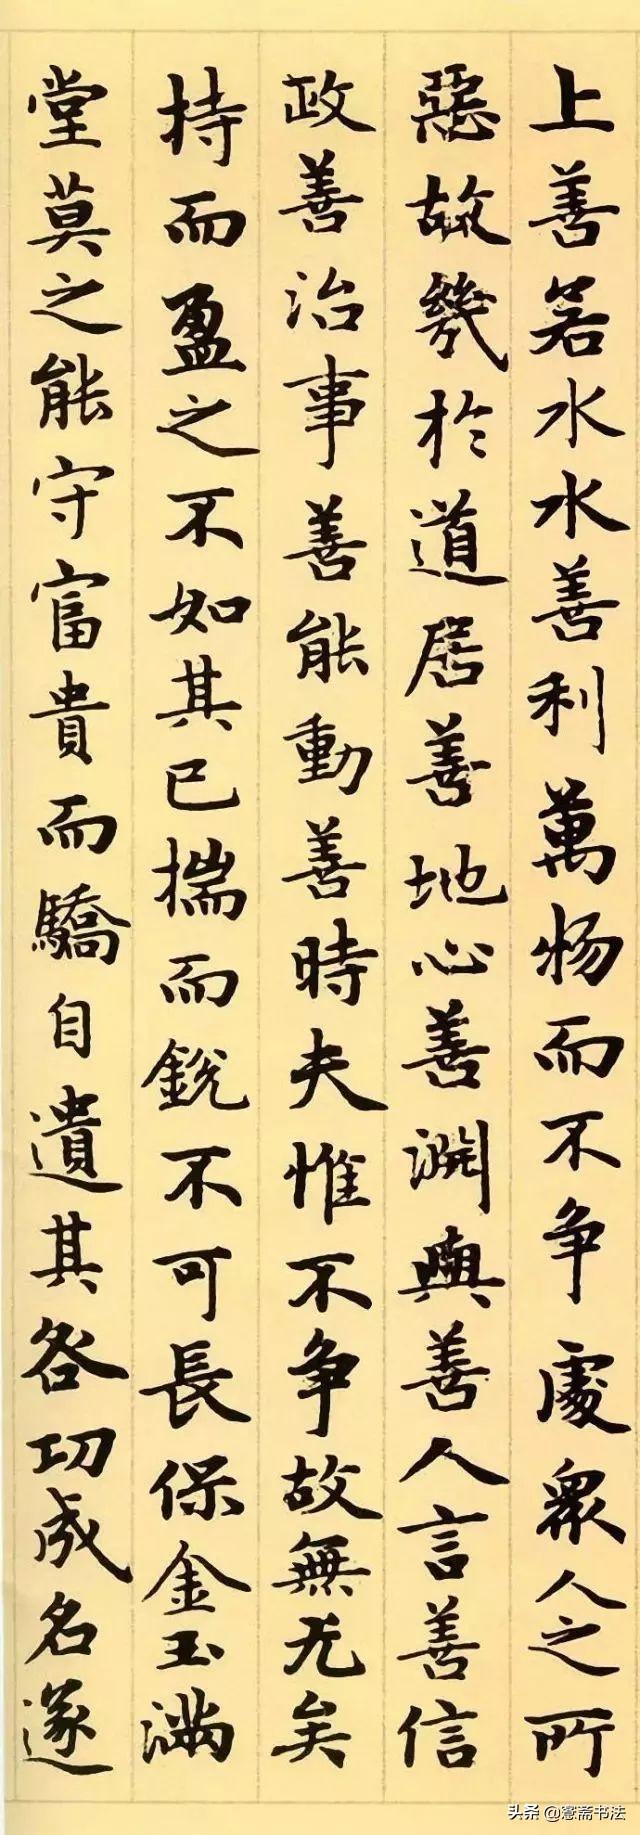 上善若水水善利萬物而不争處衆人之所
惡故幾於道居善地心善淵與善人言善信
政善治事善能動善時夫惟不争故無尤矣
持而盈之不如其已揣而銳不可長保金玉滿
堂莫之能守富貴而驕自遺其咎功成名遂
头条@窓斋书法